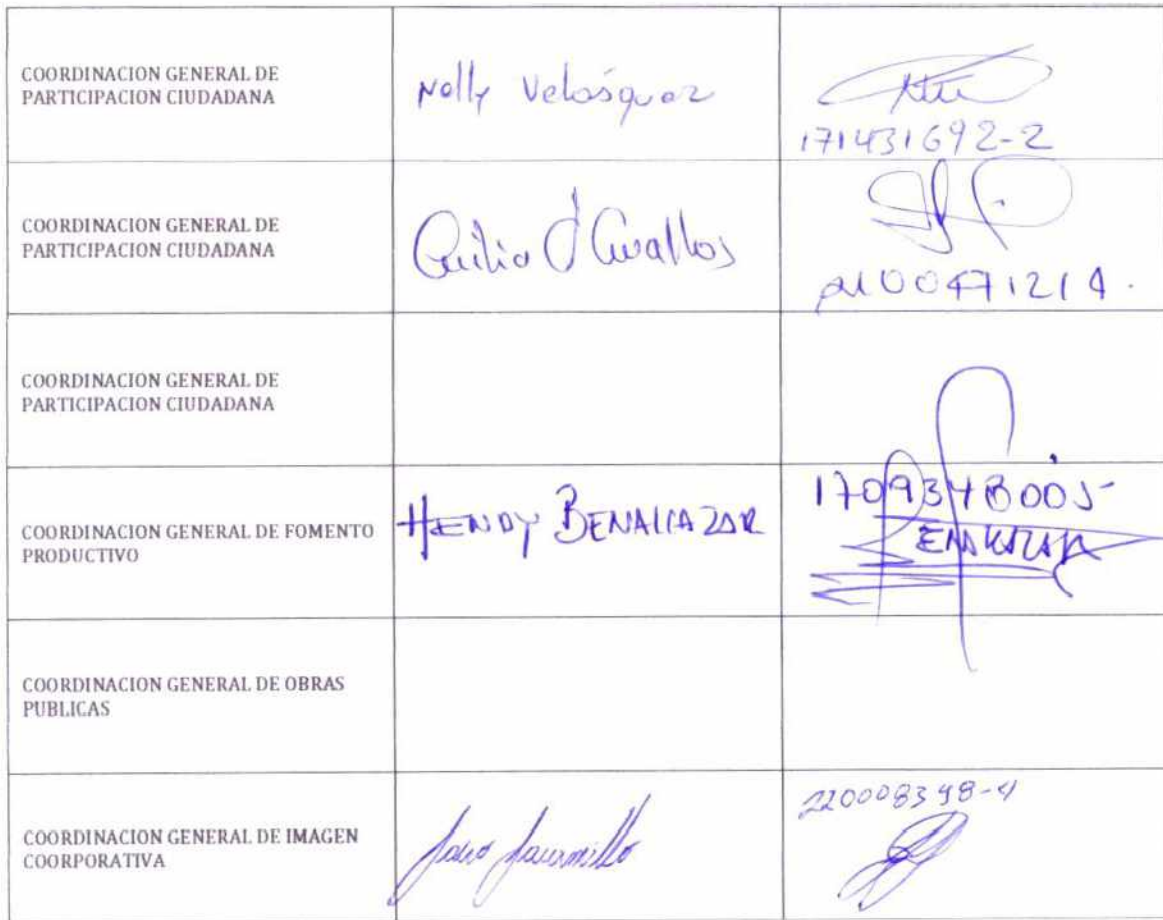 COORDINACION GENERAL DE
PARTICIPACION CIUDADANA
Nelly Velásquez
171431692-2
COORDINACION GENERAL DE
PARTICIPACION CIUDADANA
COORDINACION GENERAL DE
PARTICIPACION CIUDADANA
COORDINACION GENERAL DE FOMENTO
PRODUCTIVO
HENDY BENALCAZAR
COORDINACION GENERAL DE OBRAS
PUBLICAS
COORDINACION GENERAL DE IMAGEN
COORPORATIVA
Jaramillo
220008398-4